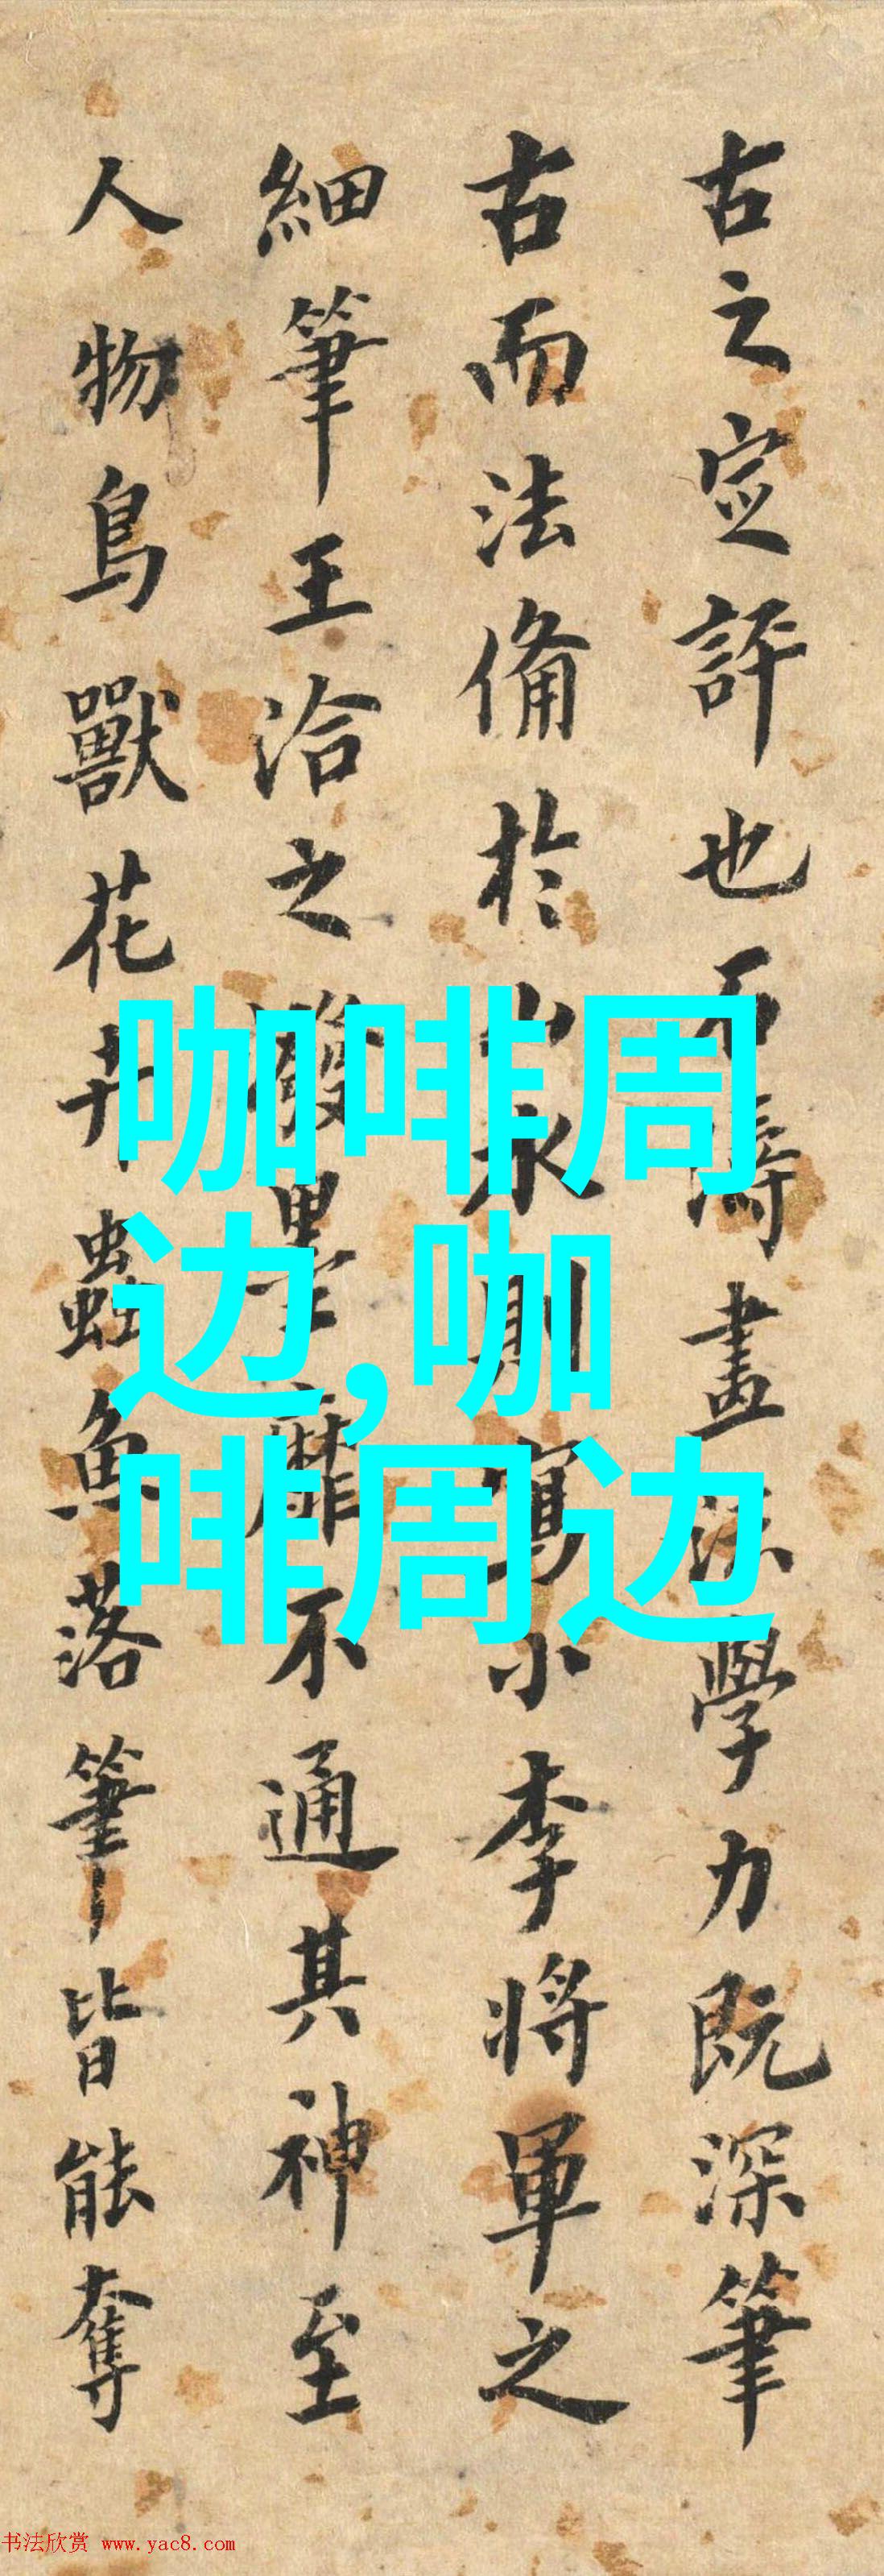 古之宣評也石濤畫法學力既深筆
古而法備於山水則寫小李將軍之
細筆王洽之潑墨靡不通其神至
人物鳥獸花卉蟲魚落筆皆能奪
咖啡周
边,咖
啡周边
书法欣赏 www.yac8.com